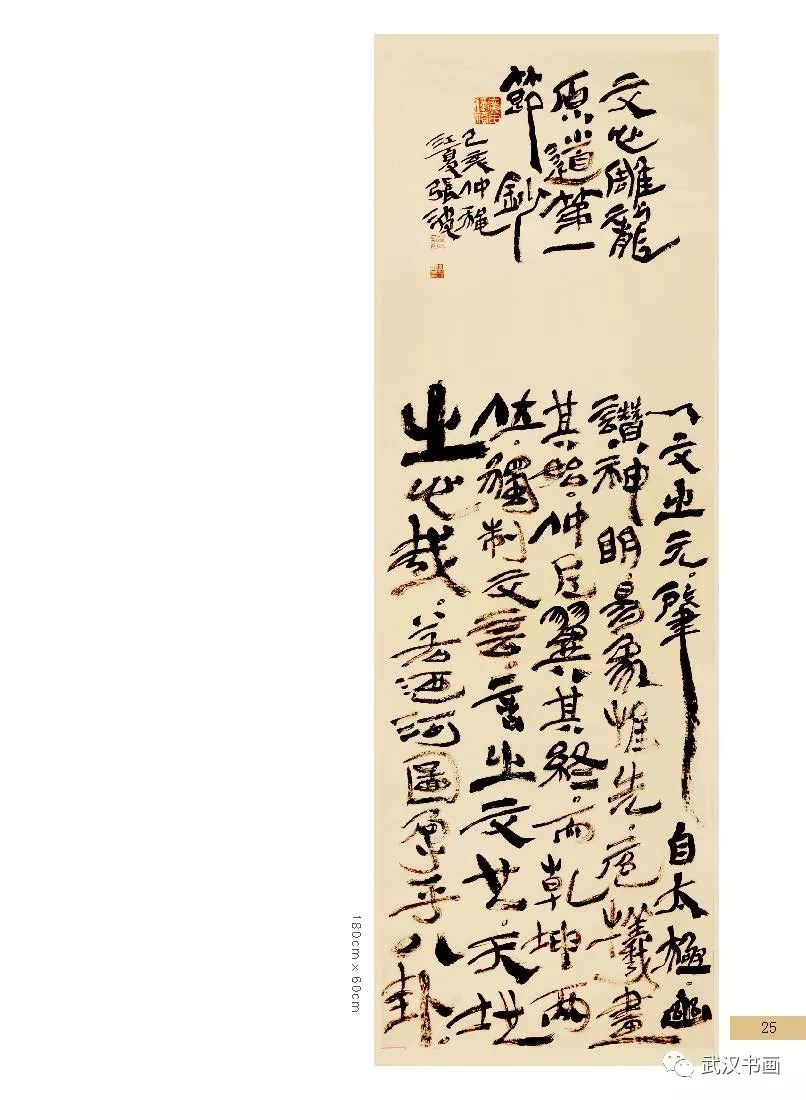 文心雕龍
原道第一
節鈔
己亥仲穐
江夏張
人文之元肇自太極幽
讚神明易象惟先庖犧畫
其始仲尼翼其終而乾坤兩
位獨制文言言之文也天地
之心哉若迺河圖孕乎八卦
180cm×60cm
25
武汉书画